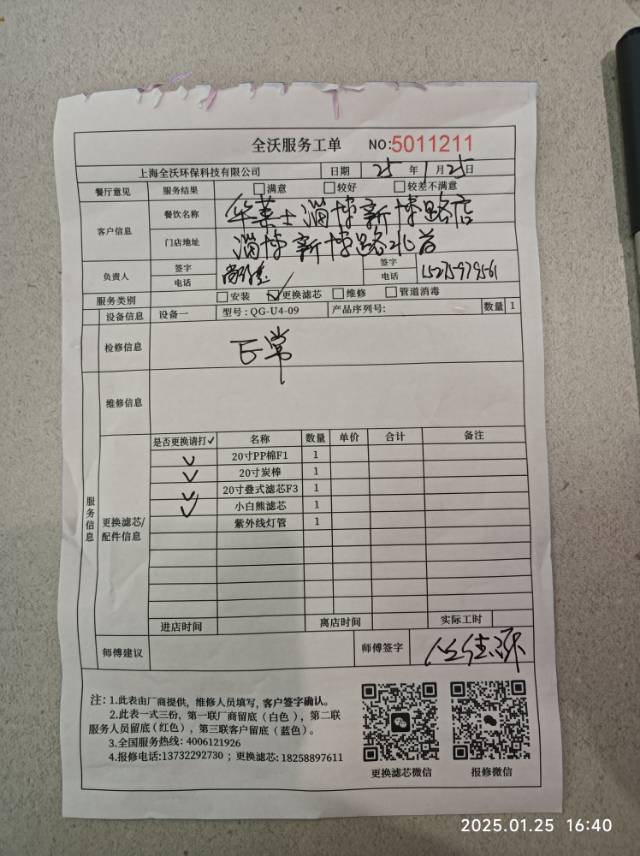 全沃服务工单 NO:5011211
上海全沃环保科技有限公司 日期 25 年 1 月 25 日
餐厅意见 服务结果 □满意 □较好 □较差不满意
客户信息 餐饮名称 华莱士淄博新博路店
门店地址 淄博新博路北首
负责人 签字 电话 签字 电话 15275979561
服务类别 □安装 ☑更换滤芯 □维修 □管道消毒
设备信息 设备一 型号: QG-U4-09 产品序列号: 数量 1
检修信息 正常
维修信息
服务信息 更换滤芯/配件信息
是否更换请打✓ 名称 数量 单价 合计 备注
✓ 20寸PP棉F1 1
✓ 20寸炭棒 1
✓ 20寸叠式滤芯F3 1
✓ 小白熊滤芯 1
紫外线灯管 1
进店时间 离店时间 实际工时
师傅建议 师傅签字
注: 1.此表由厂商提供, 维修人员填写, 客户签字确认。
2.此表一式三份, 第一联厂商留底(白色), 第二联
服务人员留底(红色), 第三联客户留底(蓝色)。
3.全国服务热线: 4006121926
4.报修电话:13732292730 ; 更换滤芯: 18258897611
更换滤芯微信 报修微信
2025.01.25 16:40